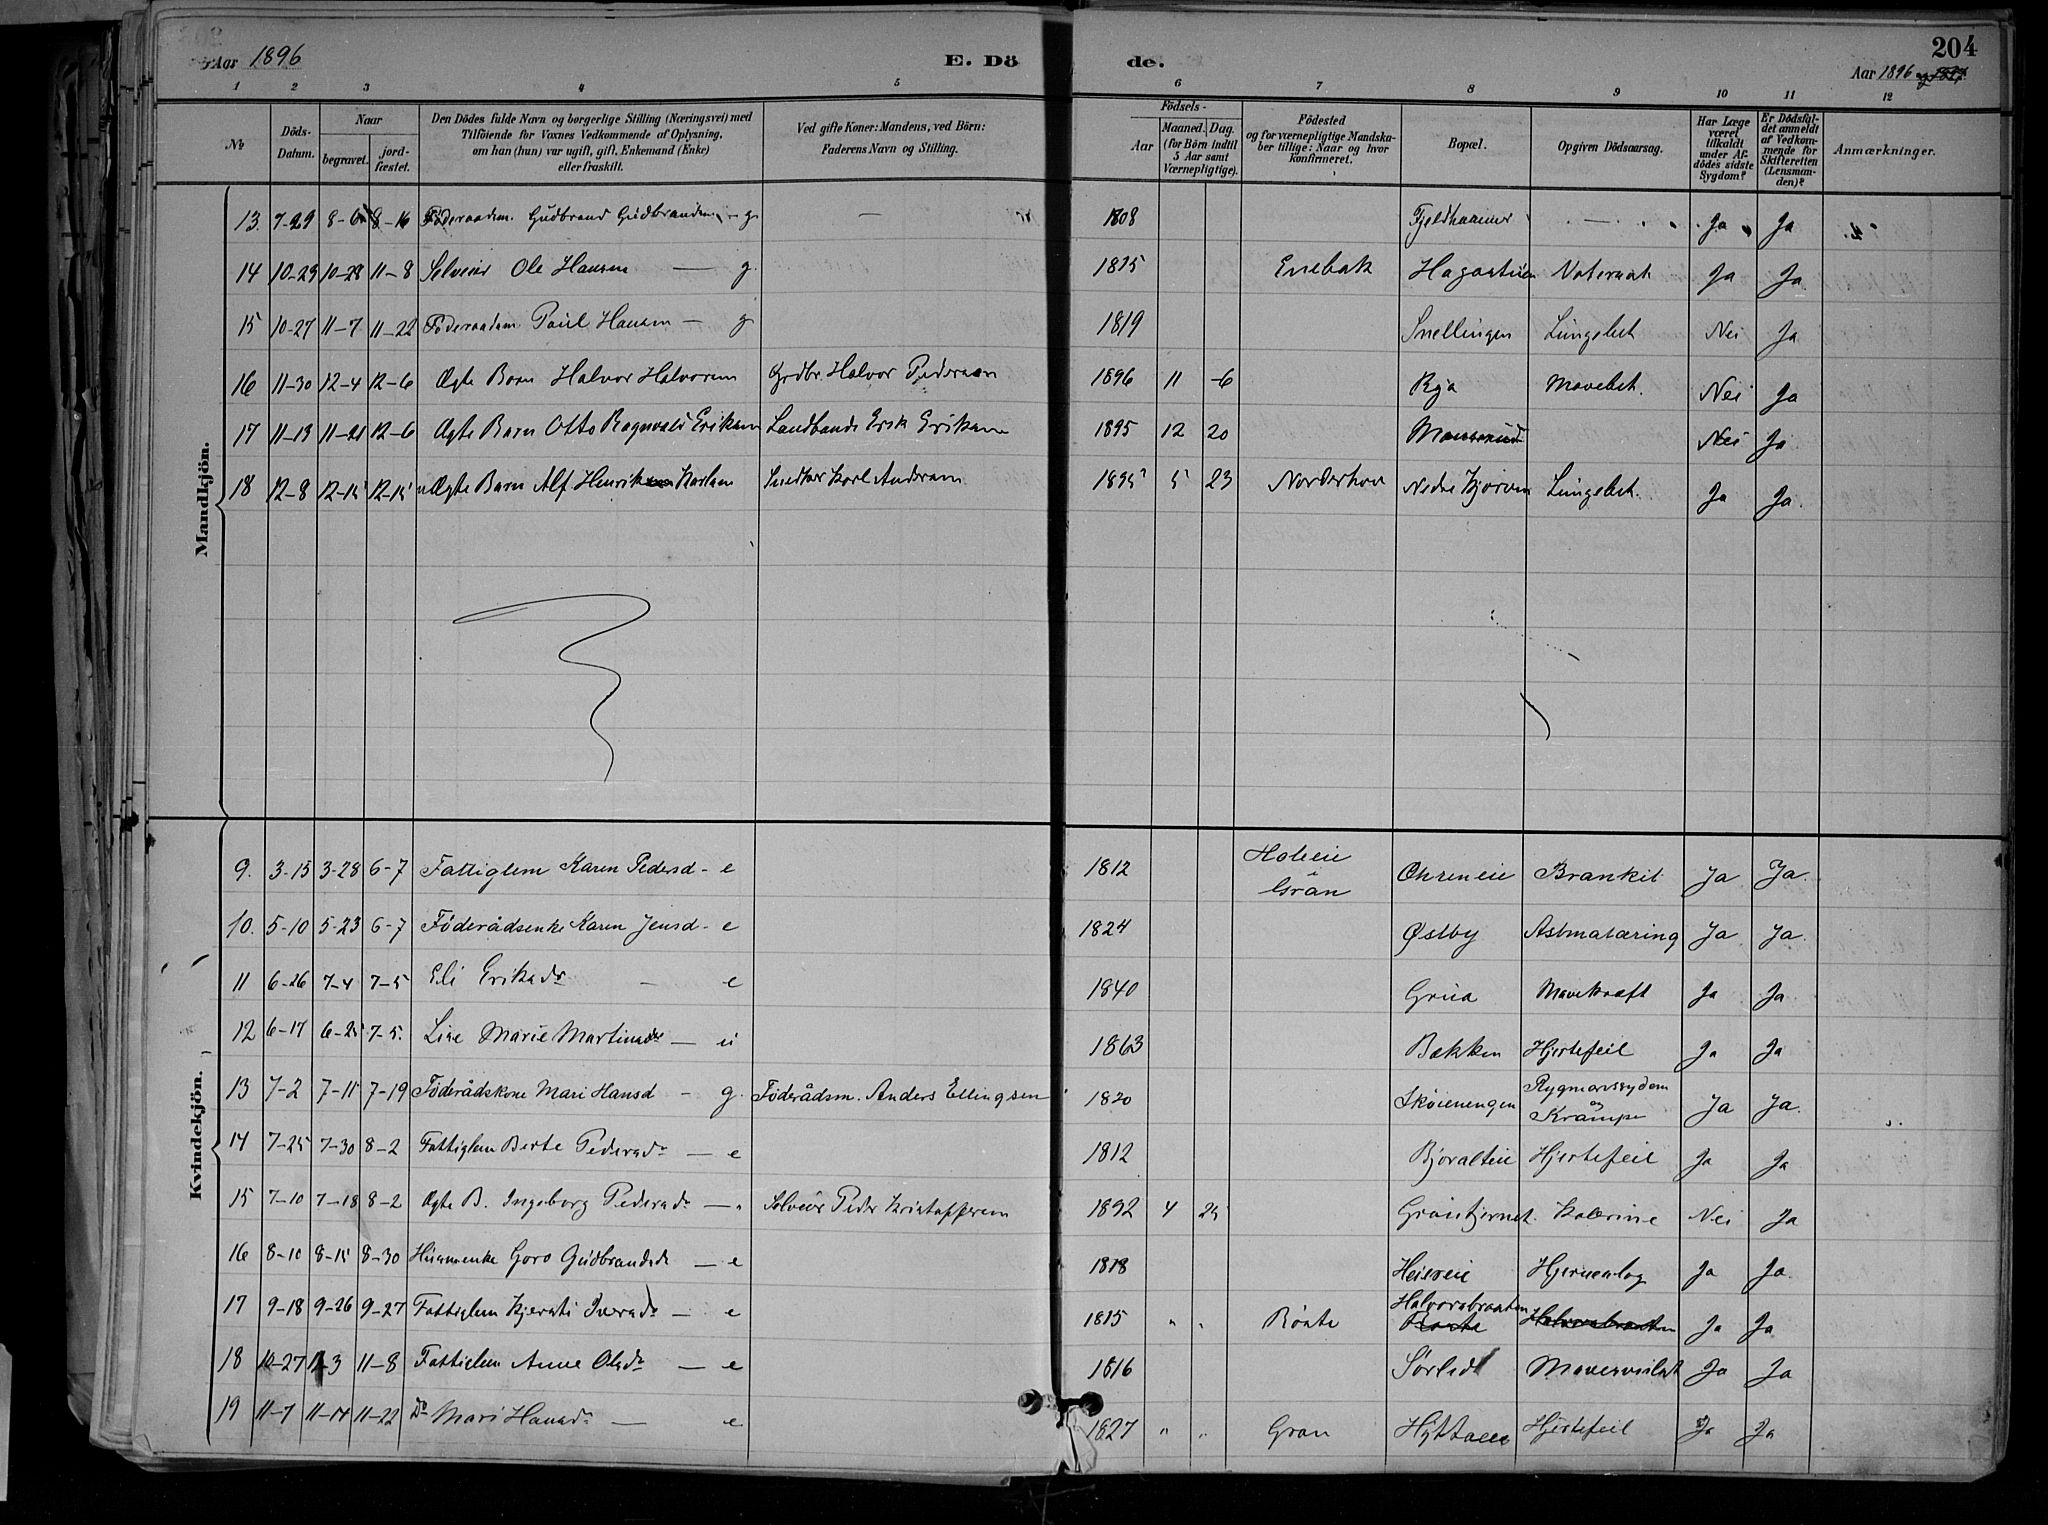 Aar 1896
E. Dö de.
204
Aar 1896 og 1897
1 2 3 4 5 6 7 8 9 10 11 12
№
Döds-Datum.
Naar
begravet.
jord-fæstet.
Den Dödes fulde Navn og borgerlige Stilling (Næringsvei) med
Tilföiende for Voxnes Vedkommende af Oplysning,
om han (hun) var ugift, gift, Enkemand (Enke)
eller fraskilt.
Ved gifte Koner: Mandens, ved Börn:
Faderens Navn og Stilling.
Födsels-
Aar
Maaned. Dag.
(for Börn indtil
5 Aar samt
Værnepligtige).
Födested
og for værnepligtige Mandska-
ber tillige: Naar og hvor
konfirmeret.
Bopæl.
Opgiven Dödsaarsag.
Har Læge
været
tilkaldt
under Af-
dødes sidste
Sygdom?
Er Dödsfal-
det anmeldt
af Vedkom-
mende for
Skifteretten
(Lensman-
den)?
Anmærkninger.
Mandkjön.
13. 7-29 8-6 8-16 Föderaadsm. Gudbrand Gudbrandsen - g. — 1808 Fjeldhammer — Ja Ja
14 10-23 10-28 11-8 Selveier Ole Hansen — g. 1815 Enebak Ja Ja
15 10-27 11-7 11-22 Föderaadsm Paul Hansen — g 1819 Snellingen Lungebet. Nei Ja
16 11-30 12-4 12-6 Ægte Barn Halvor Halvorsen Grdbr. Halvor Pedersen 1896 11 -6 Rya Mavebet. Nei Ja
17 11-13 11-21 12-6 Ægte Barn Otto Ragnvald Eriksen Landhandl. Erik Eriksen 1895 12 20 Nei Ja
18 12-8 12-15 12-15 uÆgte Barn Alf Henrik Karlsen Snedker Karl Andersen 1895 5 23 Norderhov Nedre Kjørven Lungebet. Ja Ja.
Kvindekjön.
9. 3-15 3-28 6-7 Fattiglem Karen Pedersd - e 1812 Gran Ohreneie Brankit Ja Ja
10. 5-10 5-23 6-7 Föderådsenke Karen Jensd - e 1824 Østby Astmatæring Ja Ja
11 6-26 7-4 7-5 Eli Eriksdr — e 1840 Grua Mavekræft Ja Ja
12 6-17 6-25 7-5. Lise Marie Martinsdr — u 1863 Bakken Hjertefeil Ja Ja
13 7-2 7-11 7-19 Föderådskone Mari Hansd - g. Föderådsm. Anders Ellingsen 1820 Skøienengen Rygmarvssygdom og Krampe Ja Ja.
14 7-25 7-30 8-2 Fattiglem Berte Pedersdr — e 1812 Bjoralteie Hjertefeil Ja Ja
15 7-10 7-18 8-2 Ægte B. Ingeborg Pedersdr — " Selveier Peder Kristoffersen 1892 4 25 Grantjernet. Kolerine Nei Ja
16 8-10 8-15 8-30 Husmenke Goro Gudbrandsdr — e 1818 Heiereie Hjerneslag Ja Ja
17 9-18 9-26 9-27 Fattiglem Kjersti Iversdr — e 1815 " " Roste Halvorsbraaten Roste Halvorsbraaten Ja Ja
18 10-27 11-3 11-8 Fattiglem Anne Olsdr — e 1816 Sørlid Ja Ja
19 11-7 11-14 11-22 Do Mari Hansdr — e 1827 " " Gran Hyttaeie Hjertefeil Ja Ja